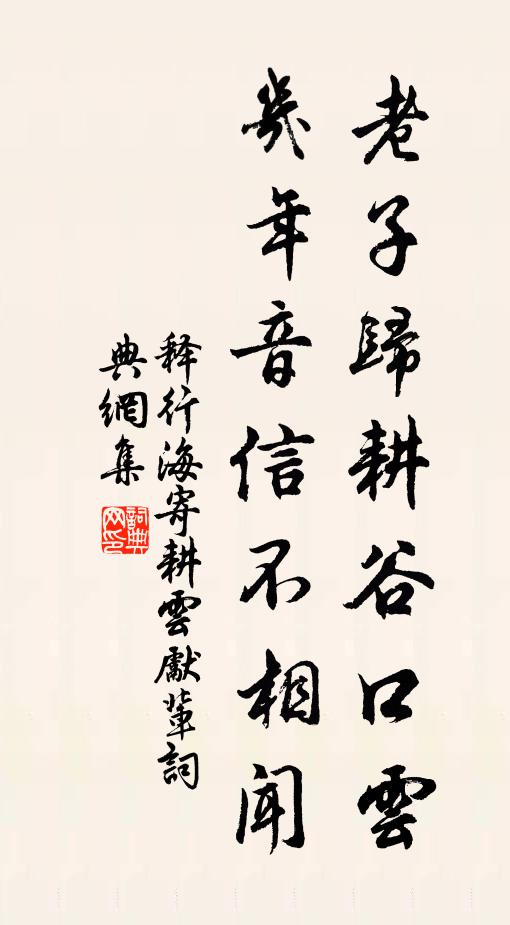 老子歸耕谷口雲
幾年音信不相聞
释行海寄耕雲獻葦詞
典網集
詞典網印